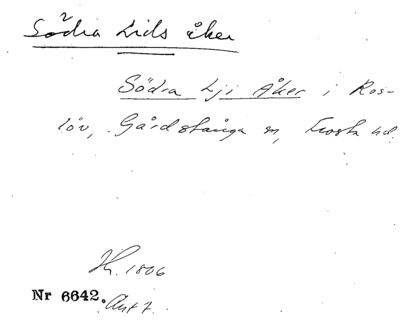 Södra Lids åker
Södra Lji Åker i Ros-
löv, Gårdstånga sn, Frosta hd.
H. 1806
Nr 6642. Akt 7.